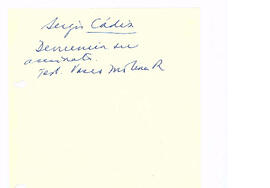 Sergio Cádiz
Denuncia su
asesinato.
Test. Vasco Molena R